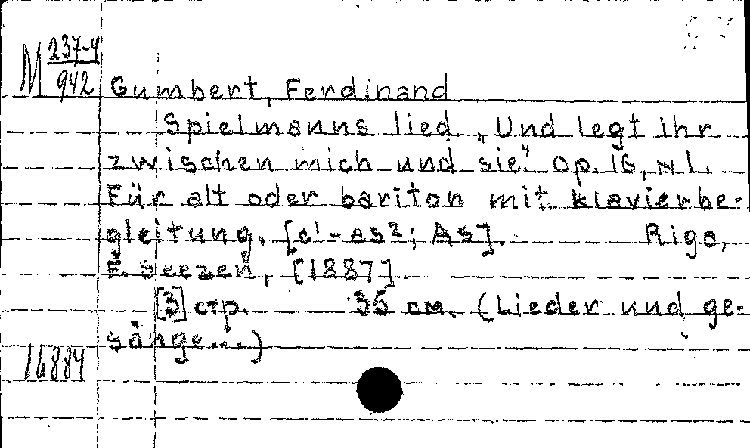 M 237-4
942
Gumbert, Ferdinand
Spielmanns lied „Und legt ihr
zwischen mich und sie." Op. 16, N 1.
Für alt oder bariton mit klavierbe-
gleitung. [c¹-es²; As]. Riga,
E. Seezen, [1887].
[3] стр. 35 см. (Lieder und ge-
sänge...)
16884